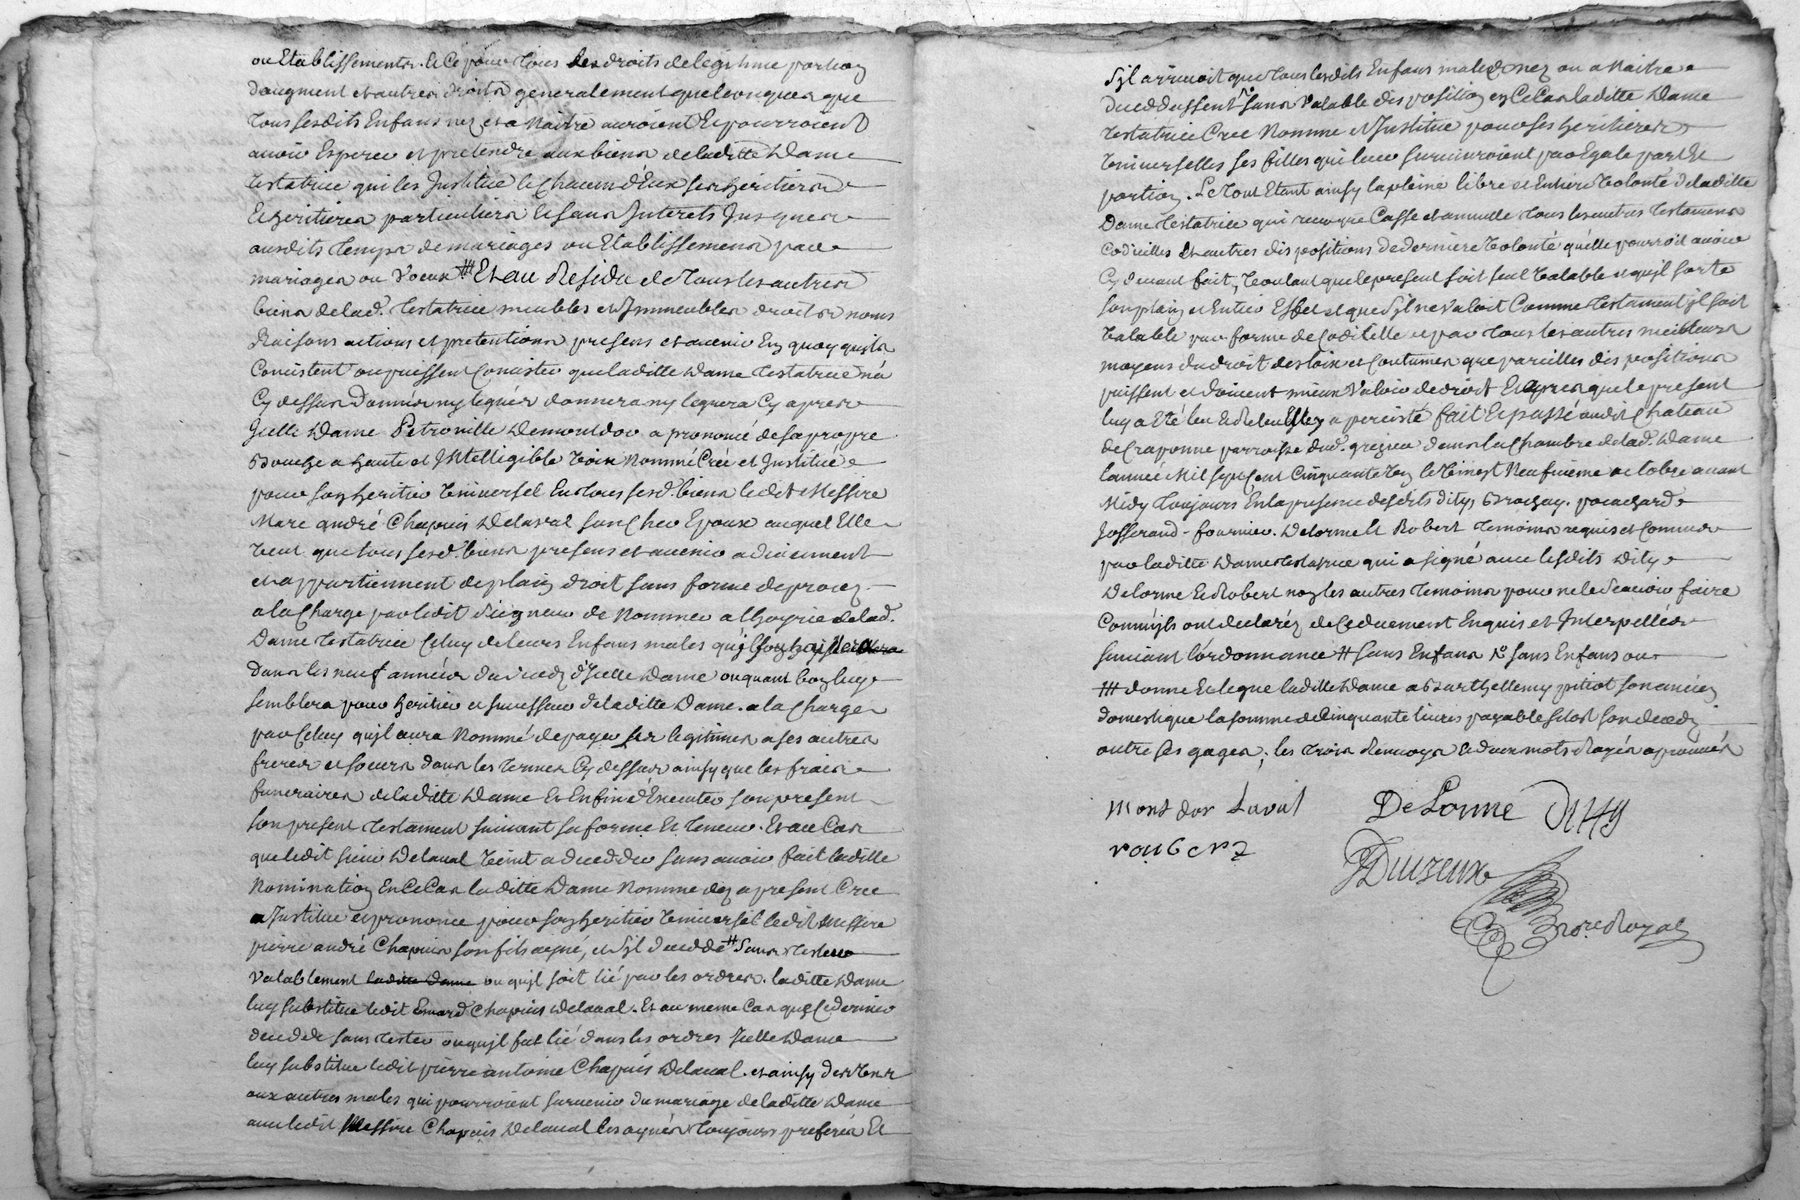 ou Etablissements. et Ce pour tous les droits de legitime portion
daugment et autres droits generalement quelconques que
tous sesdits Enfans nez et a Naitre auroient Et pourroient
avoir Esperer et pretendre aux biens de laditte Dame
testatrice qui les Institue Et Chacun d'Eux ses heritiers
Et heritieres particuliers et sans Interets Jusques
ausdits temps de mariages ou Etablissements par
mariages ou Voeux ## Et au Residu de tous les autres
biens de lad. testatrice meubles et Immeubles droits noms
Raisons actions et pretentions presens et avenir En quoy quils
Consistent ou puissent Consister que laditte Dame testatrice na
Cy dessus Donnés ny legués donnera ny leguera Cy apres
Jcelle Dame Petronille Demontdor a prononcé de sa propre
Bouche a haute et Intelligible Voix Nommé Créé et Institué
pour son heritier Universel En tous sesd. biens ledit Messire
Marc andré Chapuis Delaval son Cher Epoux auquel Elle
Veut que tous sesd. biens presens et avenir adviennent
et appartiennent de plain droit sans forme de procez
a la Charge par ledit Seigneur de Nommer a lhoyrie de lad.
Dame testatrice Celuy de leurs Enfans males qu'il
Dans les neuf années du deceds d'Jcelle Dame ou quant bon luy
semblera pour heritier et successeur de laditte Dame. a la Charge
par Celuy qu'il aura Nommé de payer les legitimes a ses autres
freres et soeurs dans les termes Cy dessus ainsy que les frais
funeraires de laditte Dame Et Enfin d'Executer son present
son present testament suivant sa forme Et teneur. Et au Cas
que ledit sieur Delaval Vint a decedder sans avoir fait laditte
Nomination En Ce Cas laditte Dame Nomme dez a present Cree
Institue et prononce pour son heritier Universel ledit Messire
pierre andré Chapuis son fils ayné, et s'il decedde # sans tester
Valablement laditte Dame ou qu'il soit lié par les ordres. laditte Dame
luy substitue ledit Chapuis Delaval. Et au meme Cas que Ce dernier
decede sans tester ou qu'il fut lié dans les ordres Jcelle Dame
luy substitue ledit pierre antoine Chapuis Delaval. et ainsy
aux autres males qui pourroient survenir du mariage de laditte Dame
avec ledit Messire Chapuis Delaval les aynés toujours preferés Et
S'il arrivoit que tous lesdits Enfans males nez ou a Naitre
deceddassent sans Valable disposition en Ce Cas laditte Dame
testatrice Cree Nomme et Institue pour ses heritieres
Universelles ses filles qui luy survivroient par Egale part Et
portion. Le tout Etant ainsy la pleine libre et Entiere Volonté de laditte
Dame testatrice qui revoque Casse et annulle tous les autres testamens
Codicilles Et autres dispositions de derniere Volonté qu'elle pourroit avoir
Cy devant fait, Voulant que le present soit seul Valable et qu'il sorte
son plain et Entier Effet et que S'il ne Valoit Comme testament il soit
Valable par forme de Codicille et par tous les autres meilleurs
moyens du droit des loix et Coutumes que pareilles dispositions
puissent et doivent mieux Valoir de droit Et apres que le present
luy a Eté leu Et Releu Elle y a percisté fait Et passé audit Chateau
de Craponne parroisse dud. grezieu dans la Chambre de lad. Dame
lannée Mil sept Cent Cinquante le Vingt Neufvieme octobre avant
Midy toujours En la presence desdits
Josserand - fournier. Delorme Et Robert temoins requis et Connus
par laditte Dame testatrice qui a signé avec lesdits
Delorme Et Robert non les autres temoins pour ne le Scavoir faire
Comm'ils ont declaréz de Ce duement Enquis et Interpellés
suivant l'ordonnance # sans Enfans Ne sans Enfans ou
### donne Et legue laditte Dame a Barthellemy pitiot son ancien
domestique la somme de Cinquante livres payable sitost son deceds
outre ses gages; les trois Renvoys Et deux mots Rayés approuvés
Mont dor Laval
De Lorme
roubert
Duizeux
Nore Royal